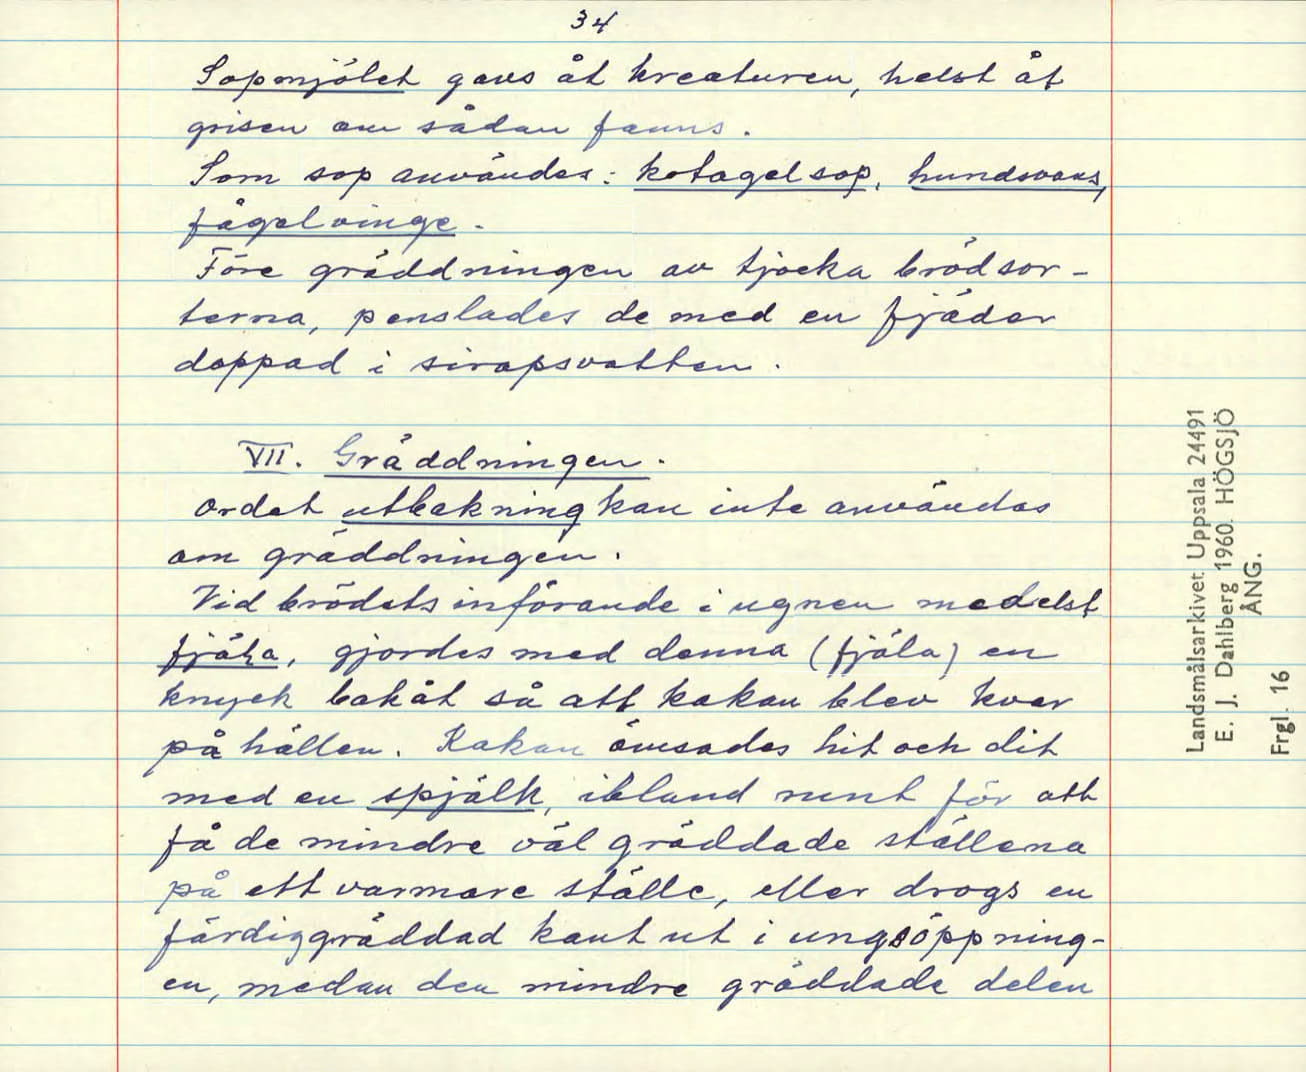 34
Sopmjölet gavs åt kreaturen, helst åt
grisen om sådan fanns.
Som sop användes: kotagelsop, hundsvans,
fågelvinge.
Före gräddningen av tjocka brödsor-
terna, penslades de med en fjäder
doppad i sirapsvatten.
VII. Gräddningen.
Ordet utbakning kan inte användas
om gräddningen.
Vid brödets införande i ugnen medelst
fjäla, gjordes med denna (fjäla) en
knyck bakåt så att kakan blev kvar
på hällen. Kakan ömsades hit och dit
med en spjälk, ibland runt för att
få de mindre väl gräddade ställena
på ett varmare ställe, eller drogs en
färdiggräddad kant ut i ungsöppning-
en, medan den mindre gräddade delen
Landsmålsarkivet Uppsala 24491
E. J. Dahlberg 1960. HÖGSJÖ
ÅNG.
Frgl. 16